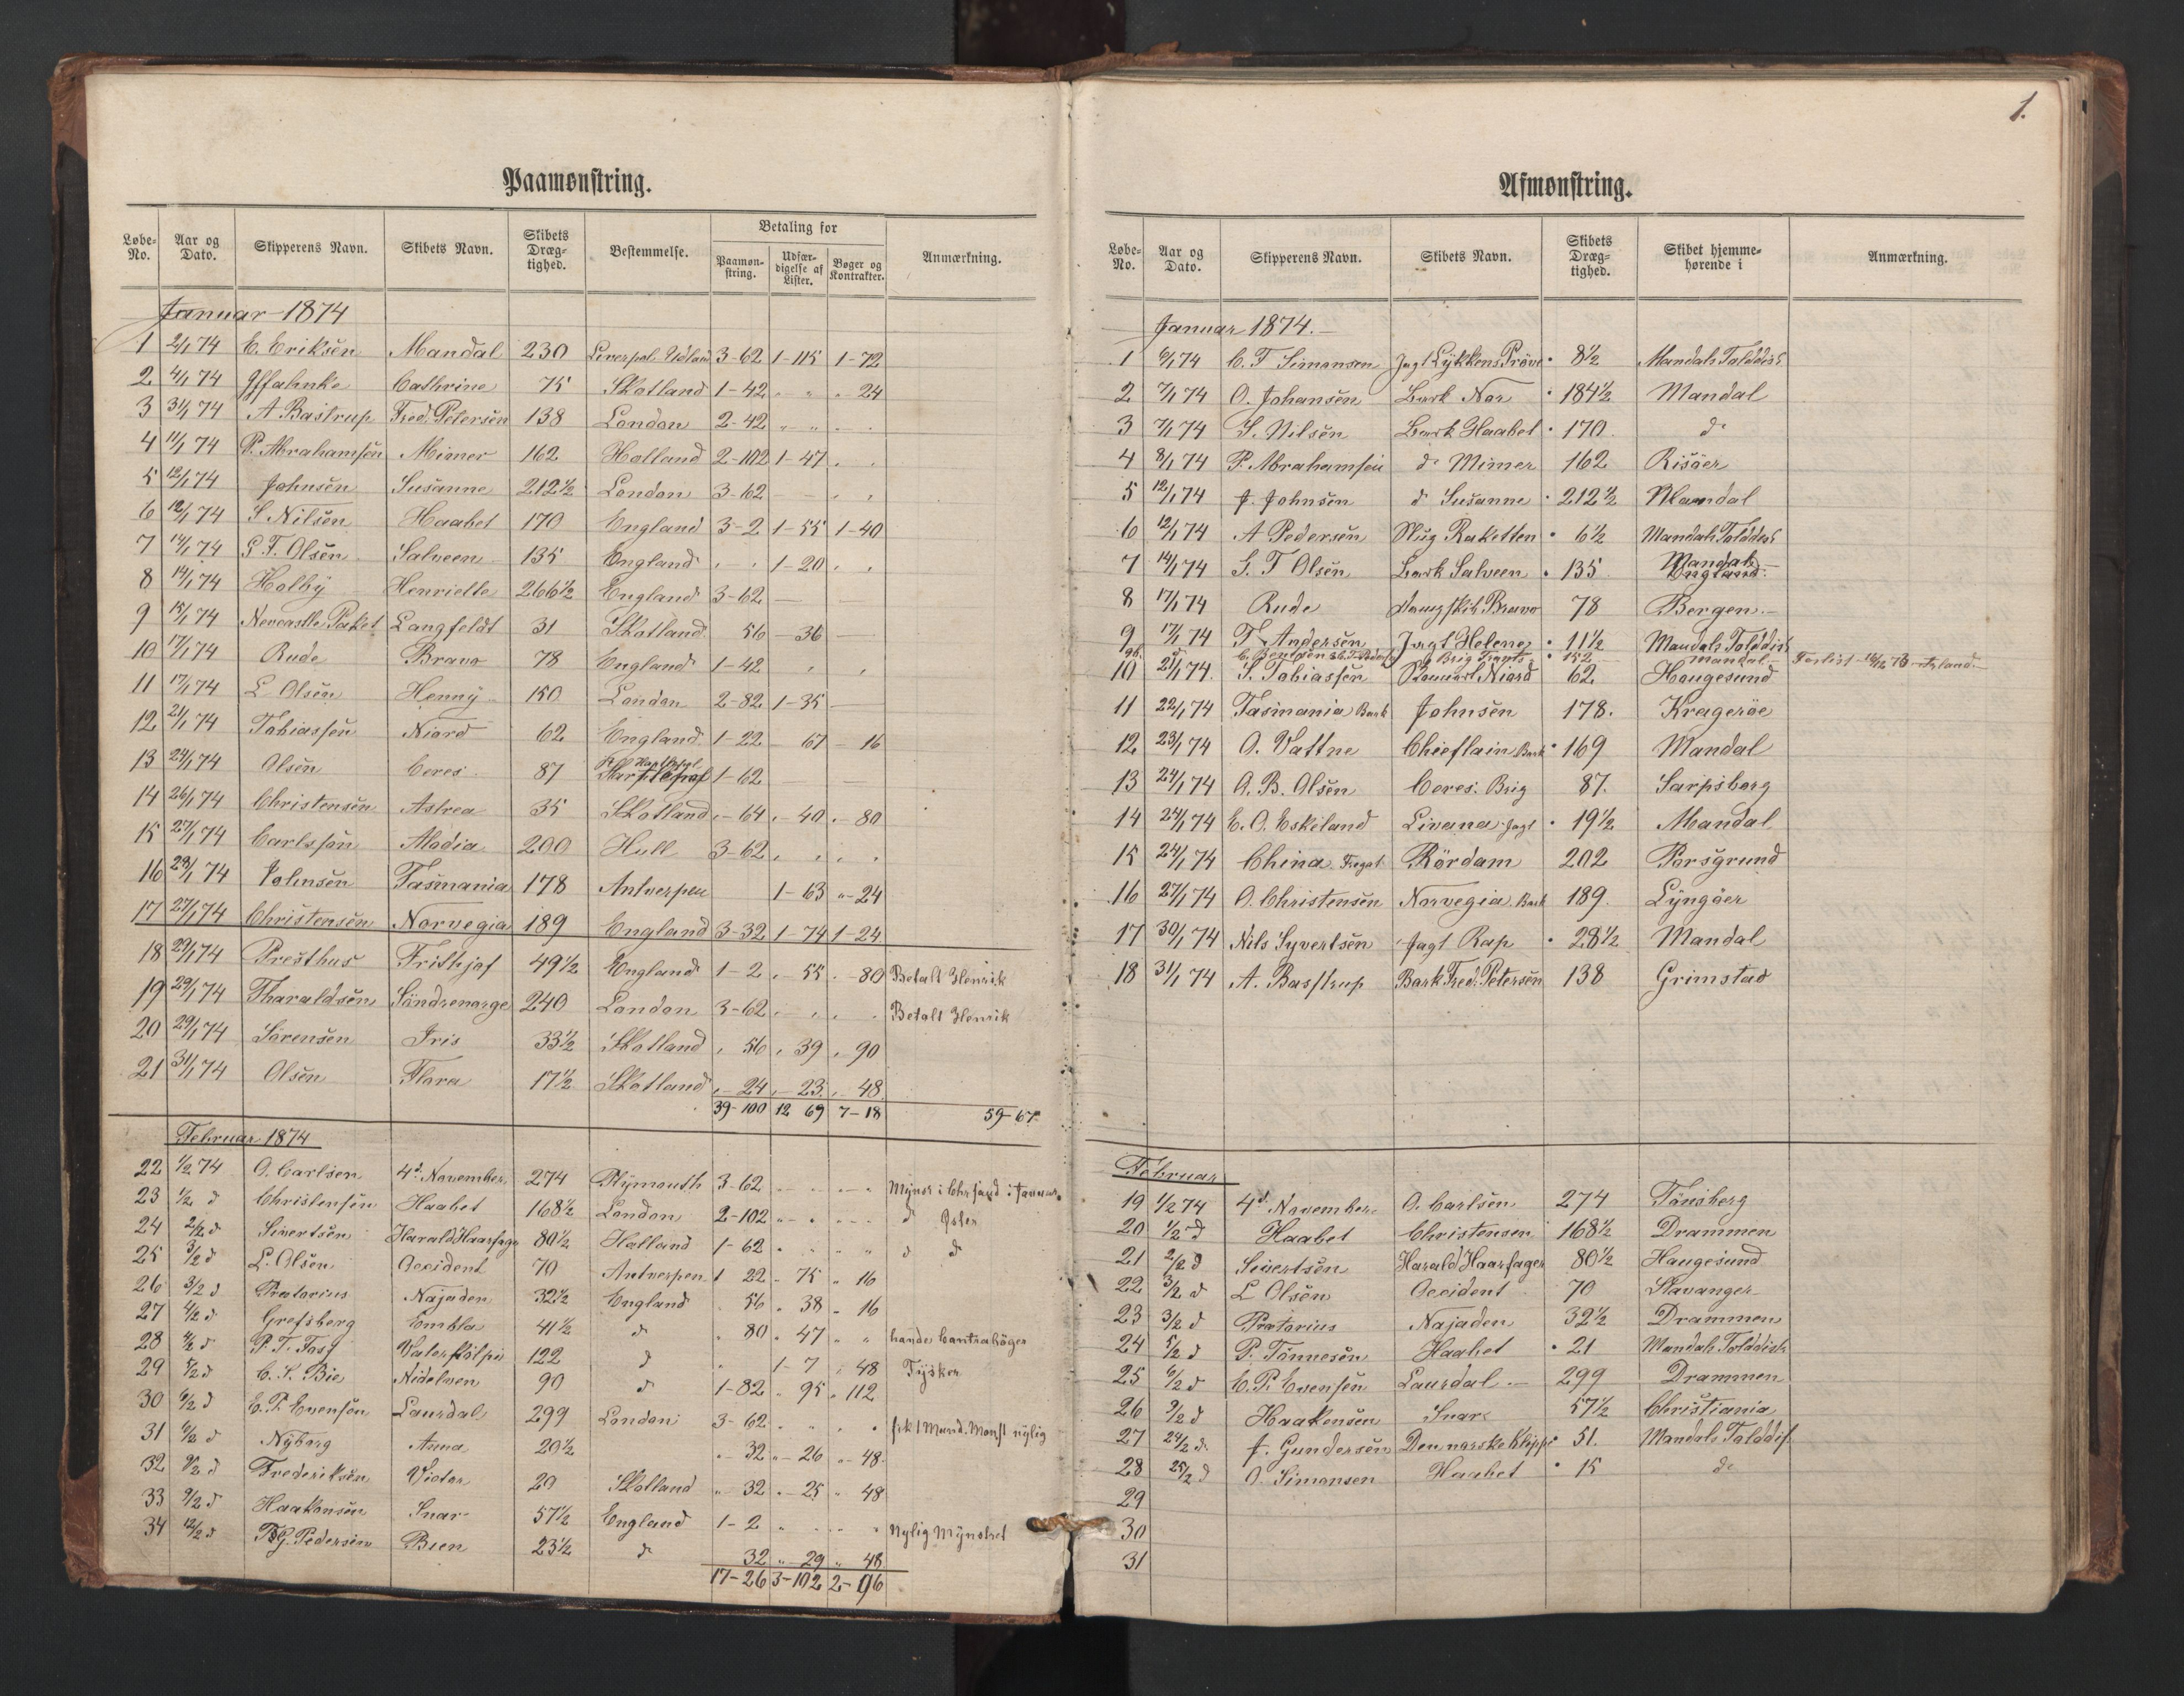 Paamønstring.
Løbe-No. Aar og Dato. Skipperens Navn. Skibets Navn. Skibets Dræg-tighed. Bestemmelse. Betaling for Paamøn-string. Udfær-digelse af Lister. Bøger og Kontrakter. Anmærkning.
Januar 1874
1 2/1 74 E. Eriksen Mandal 230 Liverpol Udland 3-62 1-115 1-72
2 4/1 74 Cathrine 75 Skotland 1-42 " " " 24
3 31/1 74 A Bastrup Fred. Petersen 138 London 2-42 " " " "
4 11/1 74 P. Abrahamsen Mimer 162 Holland 2-102 1-47 " "
5 12/1 74 Johnsen Susanne 212½ London 3-62 — " "
6 12/1 74 S Nilsen Haabet 170 England 3-2 1-55 1-40
7 14/1 74 G. T. Olsen Salveen 135 England " " 1-20 " "
8 14/1 74 Holby Henriette 266½ England 3-62 — —
9 15/1 74 Newcastle Paket Langfeldt 31 Skotland 56 - 36 —
10 17/1 74 Rude Bravo 78 England 1-42 " "
11 17/1 74 L Olsen Henny 150 London 2-82 1-35 —
12 21/1 74 Tobiassen Niord 62 England 1-22 - 67 - 16
13 24/1 74 Olsen Ceres 87 1-62 — —
14 26/1 74 Christensen Astrea 35 Skotland " - 64 " - 40 " - 80
15 27/1 74 Carlsson Alodia 200 Hull 3-62 " " " "
16 28/1 74 Johnsen Tasmania 178 Antverpen 1-63 " - 24
17 27/1 74 Christensen Norvegia 189 England 3-32 1-74 1-24
18 29/1 74 Presthus Frithjof 49½ England 1-2 " - 55 " - 80 Betalt Henrik
19 29/1 74 Tharaldsen Söndrenorge 240 London 3-62 " " " " Betalt Henrik
20 29/1 74 Sörensen Iris 33½ Skotland " 56 " 39 " 90
21 31/1 74 Olsen Flora 17½ Skotland " - 24 " - 23 " - 48
39-100 12 69 7-18 59-67
Februar 1874
22 1/2 74 O. Carlsen 4d. November 274 Plymouth 3-62 - - - -
23 1/2 d Christensen Haabet 168½ London 2-102 " " " " d
24 2/2 d Sivertsen Harald Haarfager 80½ Holland 1-62 " " " " d d
25 3/2 d L. Olsen Occident 70 Antverpen 1 22 - 75 " 16
26 3/2 d Prætorius Najaden 32½ England " 56 " 38 " 16
27 4/2 d Grefsberg Embla 41½ d " 80 " 47 " "
28 4/2 d P. T. Foss 122 d " 1-7 " 48 Tysker
29 5/2 d C. S. Bie Nidelven 90 d 1-82 " 95 " 112
30 6/2 d E. P. Evensen Laurdal 299 London 3-62 " " " "
31 6/2 d Nyborg Anna 20½ " - 32 " - 26 " - 48
32 9/2 d Frederiksen Victor 20 Skotland " 32 " 25 " 48
33 9/2 d Haakonsen Snar 57½ England 1-2 " " " " Nylig Mynstret
34 12/2 d Pedersen Bien 23½ d 32 " 29 " 48
17-26 3-102 2-96
1.
Afmønstring.
Løbe-No. Aar og Dato. Skipperens Navn. Skibets Navn. Skibets Dræg-tighed. Skibet hjemme-hørende i Anmærkning.
Januar 1874.
1 6/1 74 C. T Simonsen Jagt Lykkens Pröve 8½ Mandals Tolddist
2 7/1 74 O. Johansen Bark Nor 184½ Mandal
3 7/1 74 S. Nilsen Bark Haabet 170 do
4 8/1 74 P. Abrahamsen do Mimer 162 Risöer
5 12/1 74 J. Johnsen d Susanne 212½ Mandal
6 12/1 74 A Pedersen Slug Raketten 6½ Mandals Tolddist
7 14/1 74 G. T Olsen Bark Salveen 135 Mandal
8 17/1 74 Rude Dampskib Bravo 78 Bergen
9 17/1 74 T. Andersen Jagt Helene 11½ Mandals Tolddist
9b. Brig 152 Mandal Forlist
10 21/1 74 S. Tobiassen Niord 62 Haugesund
11 22/1 74 Tasmania Bark Johnsen 178. Kragerøe
12 23/1 74 O. Vattne Chieftain Bark 169 Mandal
13 24/1 74 A. B. Olsen Ceres. Brig 87. Sarpsborg
14 24/1 74 E. O. Eskeland Livana Jagt 19½ Mandal
15 24/1 74 China Fregat Rördam 202 Porsgrund
16 27/1 74 O. Christensen Norvegia Bark 189. Lyngöer
17 30/1 74 Nils Syvertsen Jagt Rap 28½ Mandal
18 31/1 74 A. Basstrup Bark Fred. Petersen 138 Grimstad
Februar
19 1/2 74 4d. November O. Carlsen 274 Tönsberg
20 1/2 d Haabet Christensen 168½ Drammen
21 2/2 d Sivertsen Harald Haarfager 80½ Haugesund
22 3/2 d L Olsen Occident 70 Stavanger
23 3/2 d Prætorius Najaden 32½ Drammen
24 5/2 d P. Tönnesen Haabet 21 Mandals Tolddist
25 6/2 d E. P. Evensen Laurdal 299 Drammen
26 9/2 d Haakonsen Snar 57½ Christiania
27 24/2 d. J. Gundersen Den norske Klippe 51. Mandals Tolddis
28 25/2 d O. Simonsen Haabet 15 do
29
30
31